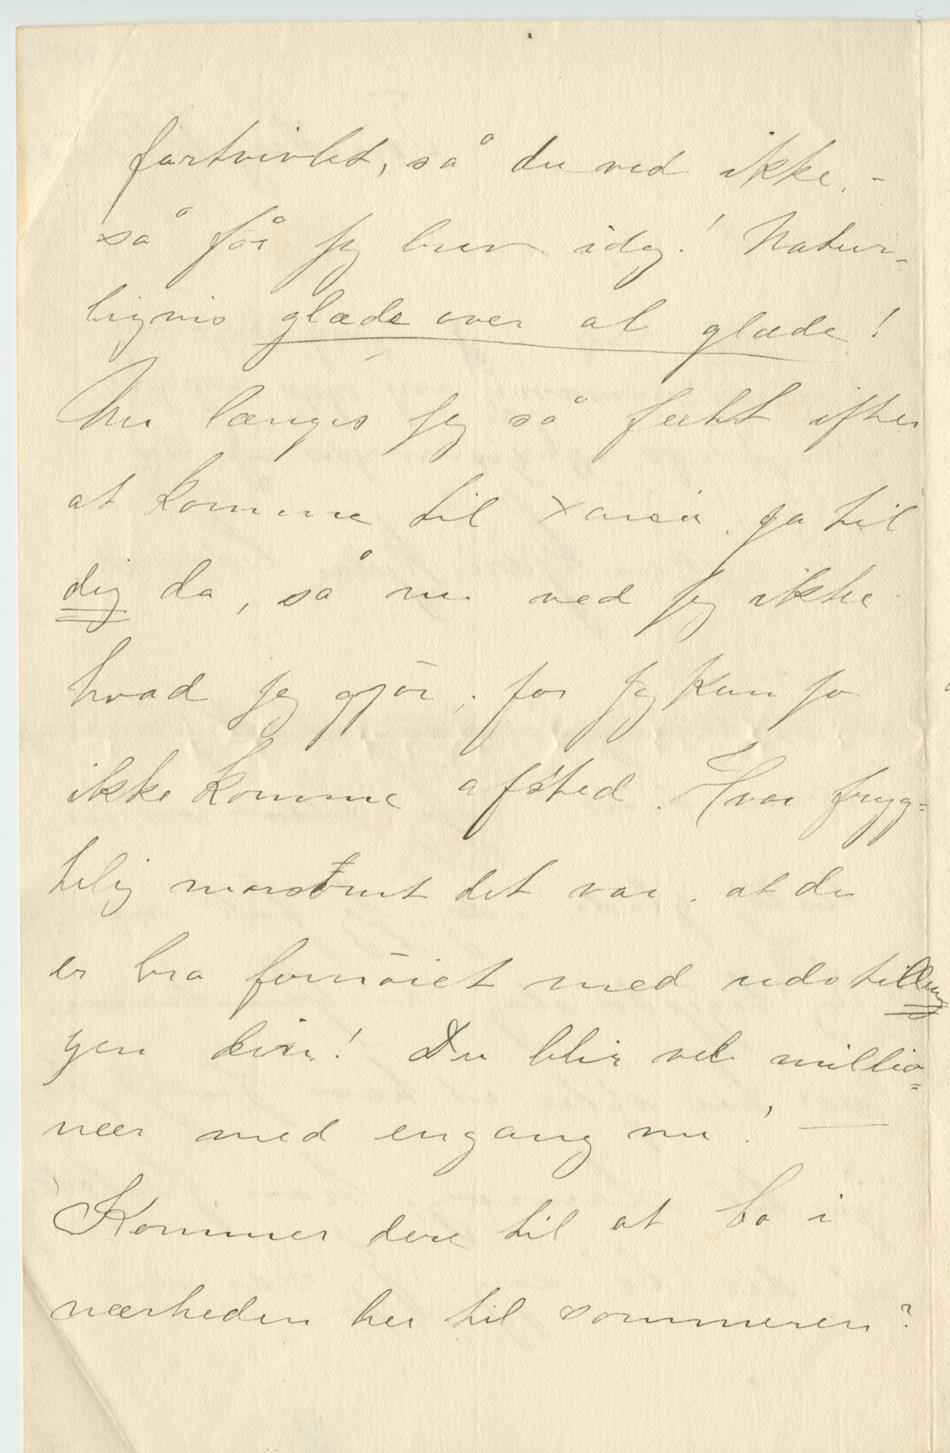 fortvivlet, så du ved ikke. -
så får jeg brev idag! Natur-
ligvis glæde over al glæde!
Nu længes jeg så fælt efter
at komme til Xania, ja til
dig da, så nu ved jeg ikke
hvad jeg gjör; for jeg kan jo
ikke komme afsted. Hvor fryg=
telig morsomt det var, at du
er bra fornöiet med udstillin
gen din! Du blir vel millio=
nær med engang nu! —
Kommer dere til at bo i
nærheden her til sommeren?